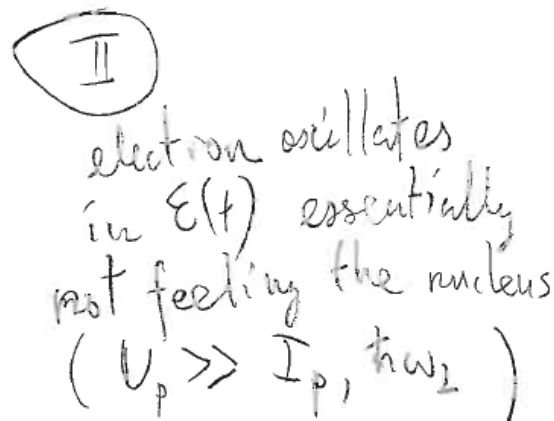 II
electron oscillates
in ε(t) essentially
not feeling the nucleus
( U_p >> I_p, ħω_L )